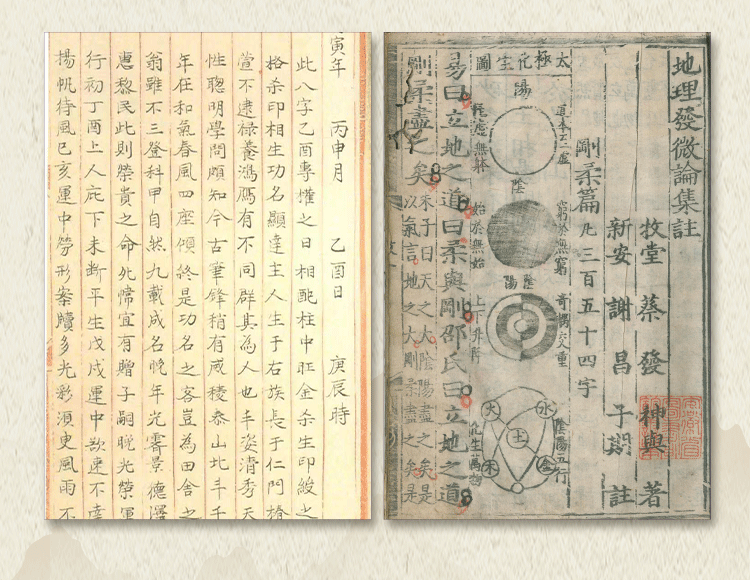 地理發微論集註
牧堂 蔡發 神與 著
新安 謝昌 子期 註
剛柔篇 凡三百五十四字
太極化生圖
陽
陰
窮於無窮
始於無始
陰
陽
上下升所
陰陽五行
化生萬物
水
火
土
木
金
易曰立地之道曰柔與剛邵氏曰立地之道
剛柔盡之矣
朱子曰天之大陰陽盡之矣是
以氣言地之大剛柔盡之矣是
寅年 丙申月 乙酉日 庚辰時
此八字乙酉專權之日相配柱中旺金杀生印綬之
格杀印相生功名顯達主人生于右族長于仁門椿
萱不逮祿養鴻鴈有不同群其為人也丰姿清秀天
性聰明學問頗知今古筆鋒稍有威稜泰山北斗千
年在和氣春風四座傾終是功名之客豈為田舍之
翁雖不三登科甲自然九載成名晚年光霽景德澤
惠黎民此則榮貴之命死帰宜有贈子嗣晚光榮運
行初丁酉上人庇下未断平生戊戌運中欲速不達
揚帆待風己亥運中勞形案牘多光彩須更風雨不